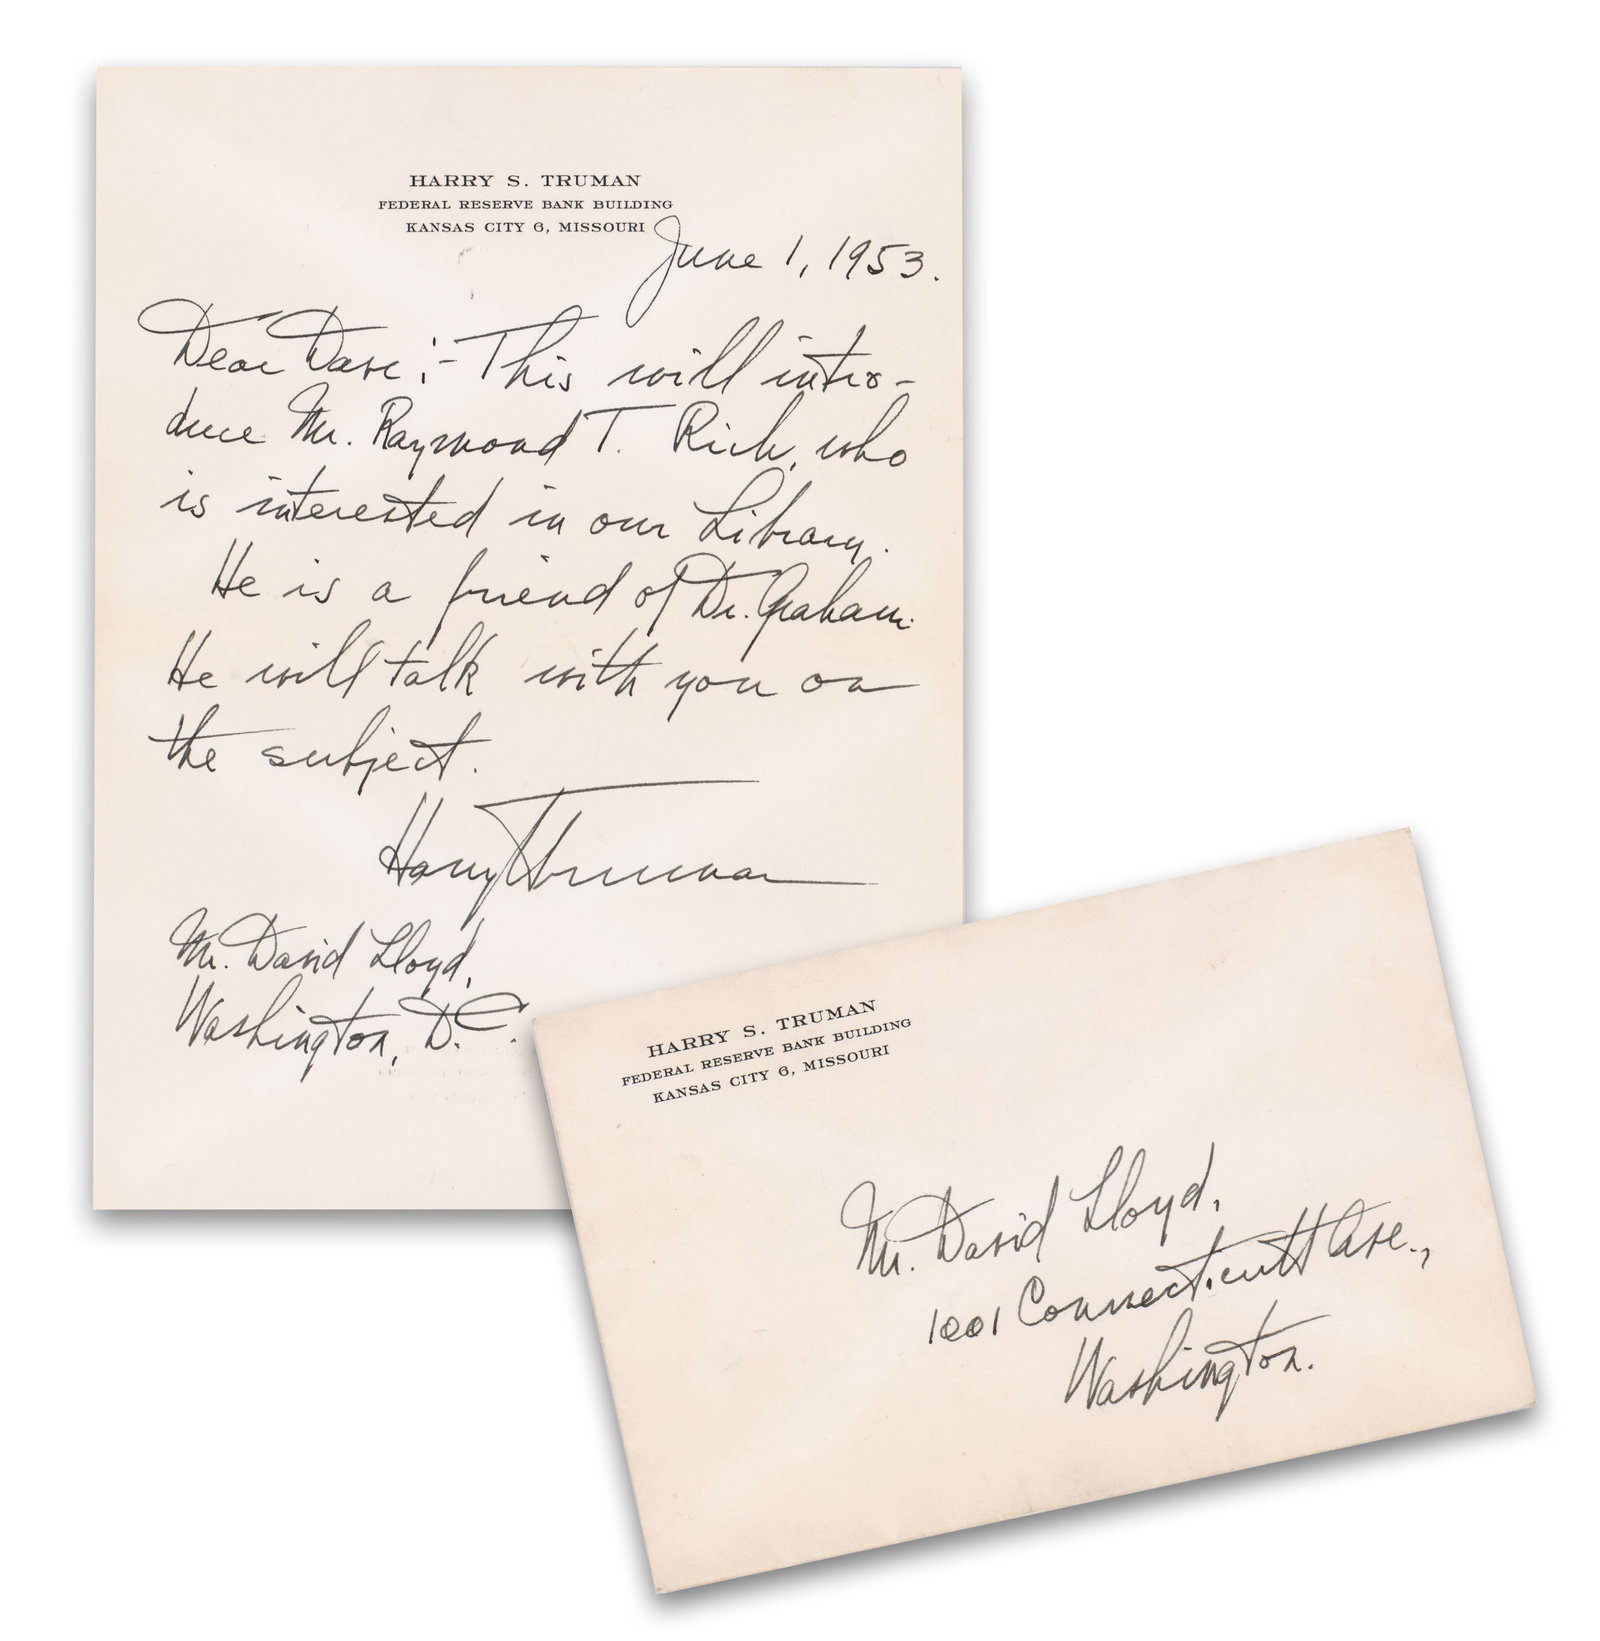 HARRY S. TRUMAN
FEDERAL RESERVE BANK BUILDING
KANSAS CITY 6, MISSOURI
June 1, 1953.
Dear Dave:- This will intro-
duce Mr. Raymond T. Rich, who
is interested in our Library.
He is a friend of Dr. Graham.
He will talk with you on
the subject.
Harry Truman
Mr. David Lloyd,
Washington, D.C.
HARRY S. TRUMAN
FEDERAL RESERVE BANK BUILDING
KANSAS CITY 6, MISSOURI
Mr. David Lloyd,
1001 Connecticutt Ave.,
Washington.